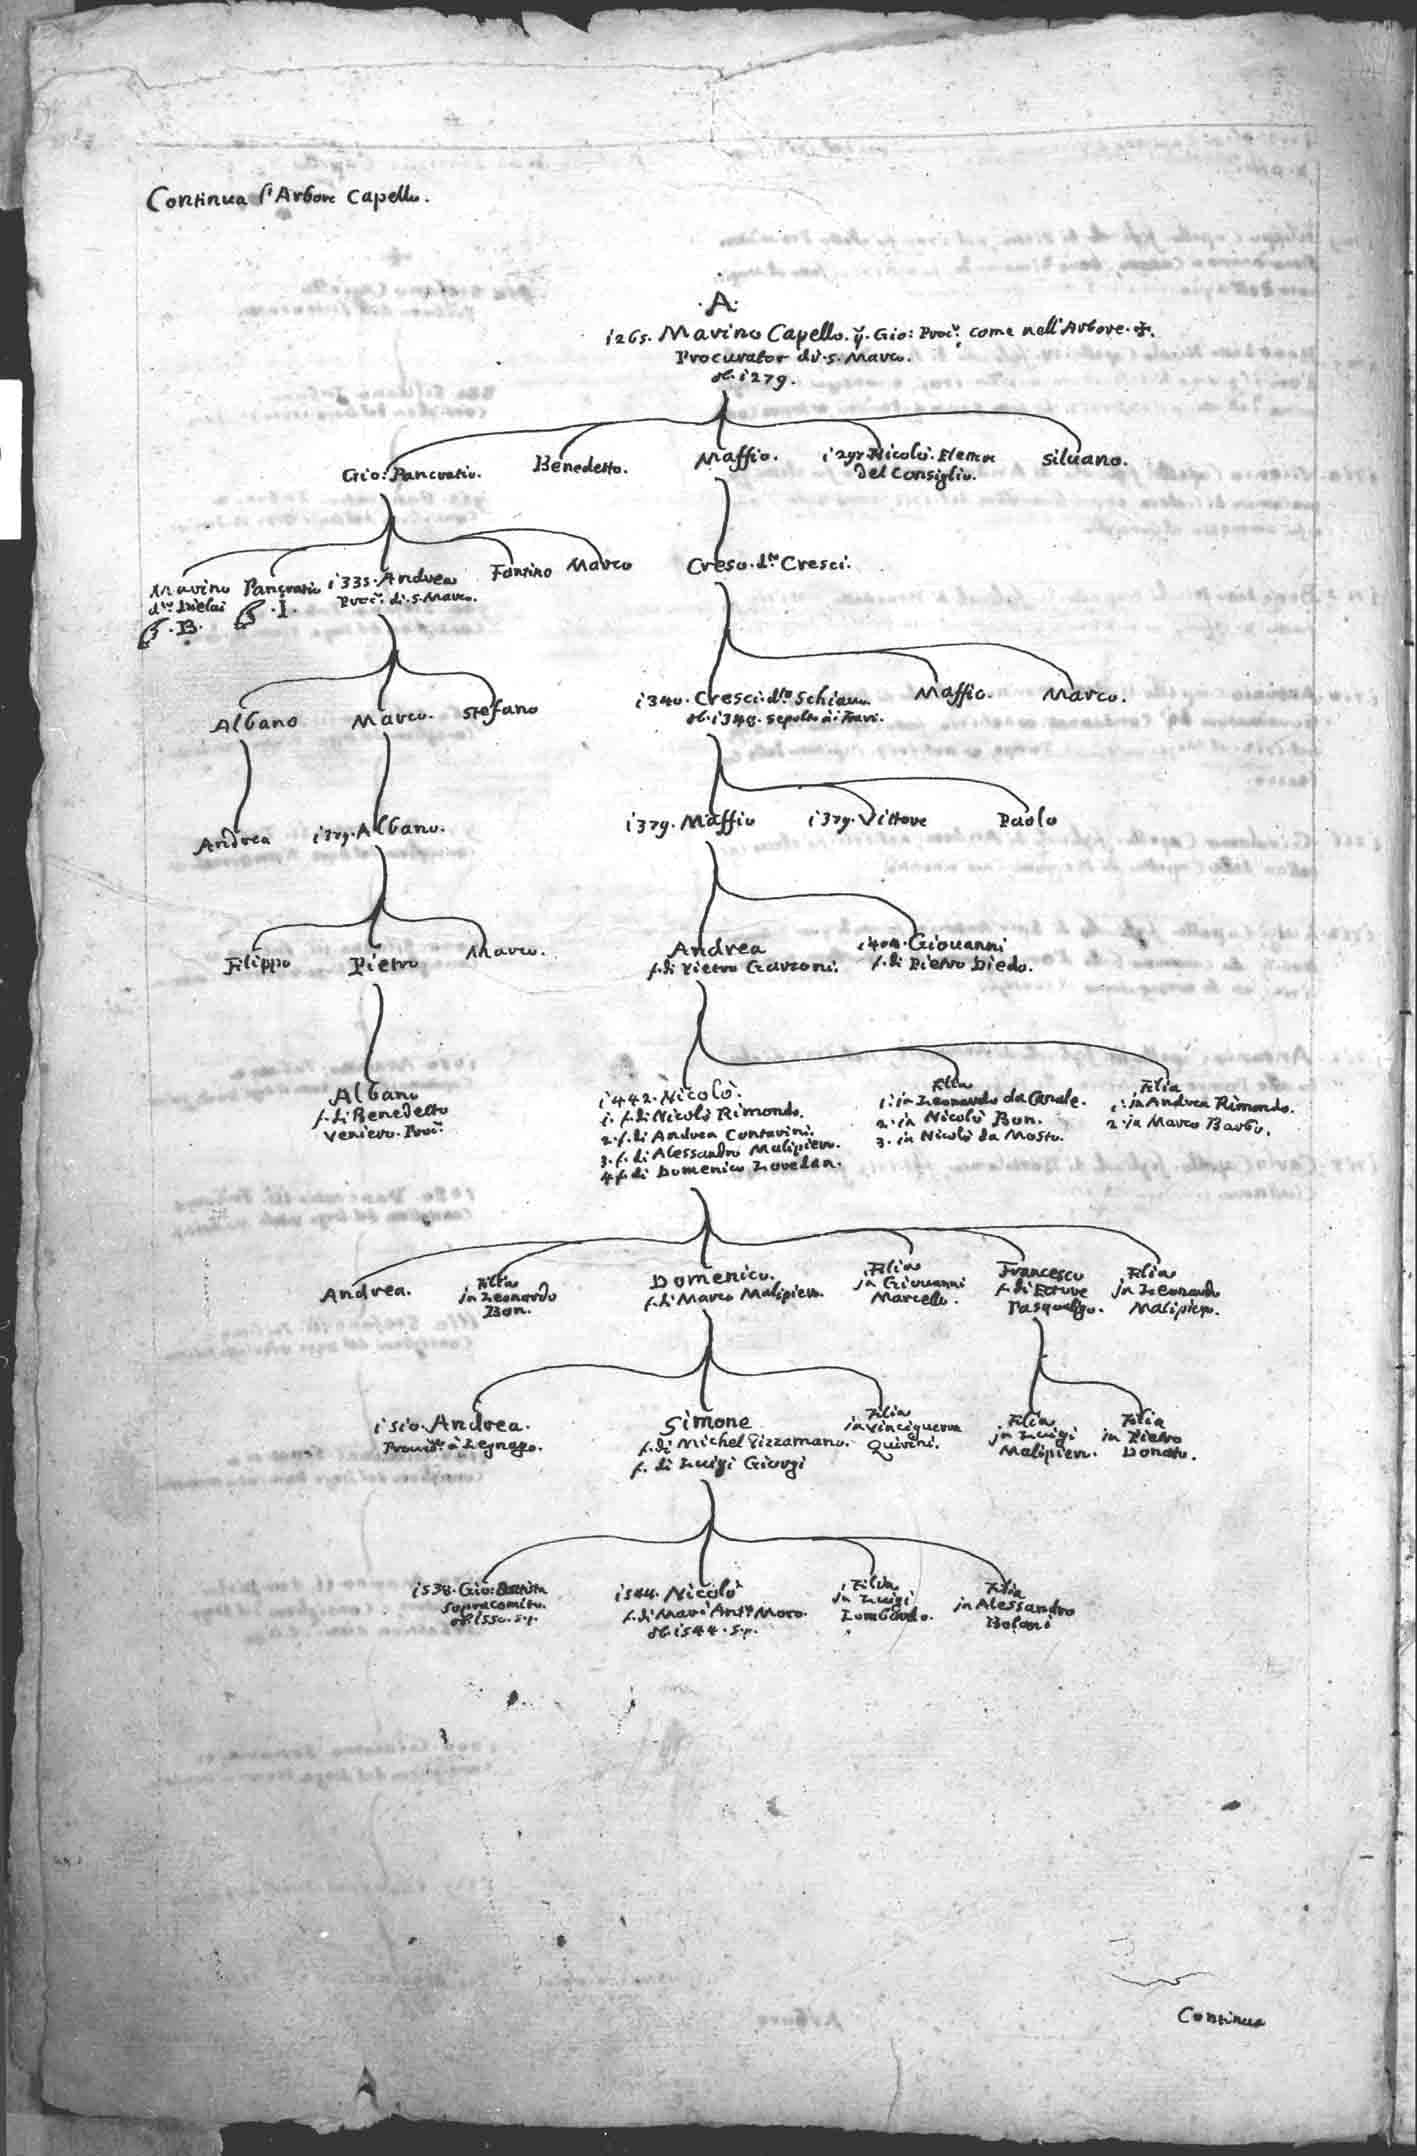 Continua l'Arbore Capello.
A.
1265. Marino Capello. q. Gio: Procr. come nell'Arbore.
Procurator di S. Marco.
ob. 1279.
Gio: Pancratio. Benedetto. Maffio. Nicolò. Elettor Siluano.
del Consiglio.
Marino Pancratio 1335. Andrea Fantino Marco Creso. dto Cresci.
dto Procr. di S. Marco.
.B. .I.
Albano Marco. Stefano 1340. Cresci. dto Schiauo Maffio. Marco.
ob. 1348. sepolto ai Frari.
Andrea 1379. Albano. 1379. Maffio 1379. Vittore Paolo
Filippo Pietro Marco. Andrea 1404. Giouanni
f. di Pietro Garzoni. f. di Pietro Diedo.
Albano 1442. Nicolò. Filia Filia
f. di Benedetto 1. f. di Nicolò Rimondo. 1. in Leonardo da Canale. 1. in Andrea Rimondo.
Veniero. Procr. 2. f. di Andrea Contarini. 2. in Nicolò Bon. 2. in Marco Barbo.
3. f. di Alessandro Malipiero. 3. in Nicolò da Mosto.
4. f. di Domenico Loredan.
Andrea. Filia Domenico. Filia Francesco Filia
in Leonardo f. di Marco Malipiero. in Giouanni f. di Ettore in Leonardo
Bon. Marcello. Pasqualigo. Malipiero.
1510. Andrea. Simone Filia Filia Filia
Proueditr. à Legnago. f. di Michel Pizzamano. in Vinciguerra in Luigi in Pietro
f. di Luigi Giorgi Quirini. Malipiero. Donato.
1538. Gio: Battista 1544. Nicolò Filia Filia
Sopracomito. f. di Marc'Anto. Moro. in Luigi in Alessandro
ob. 1550. s.p. ob. 1544. s.p. Lombardo. Bolani
Continua
A